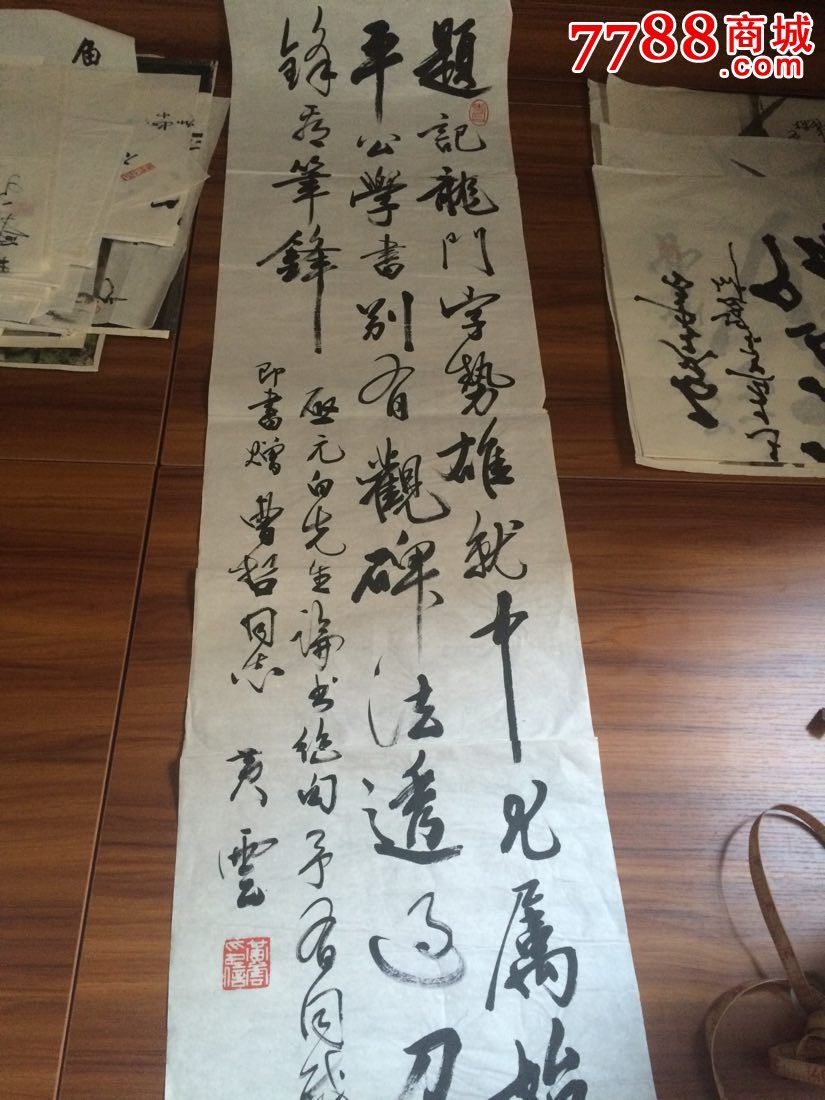 7788商城
.com
題記龍門字勢雄就中尤属始
平公學書別有觀碑法透過刀
鋒看筆鋒
啟元白先生論書絕句予有同感
即書贈曹哲同志 黃雲
黃雲印信